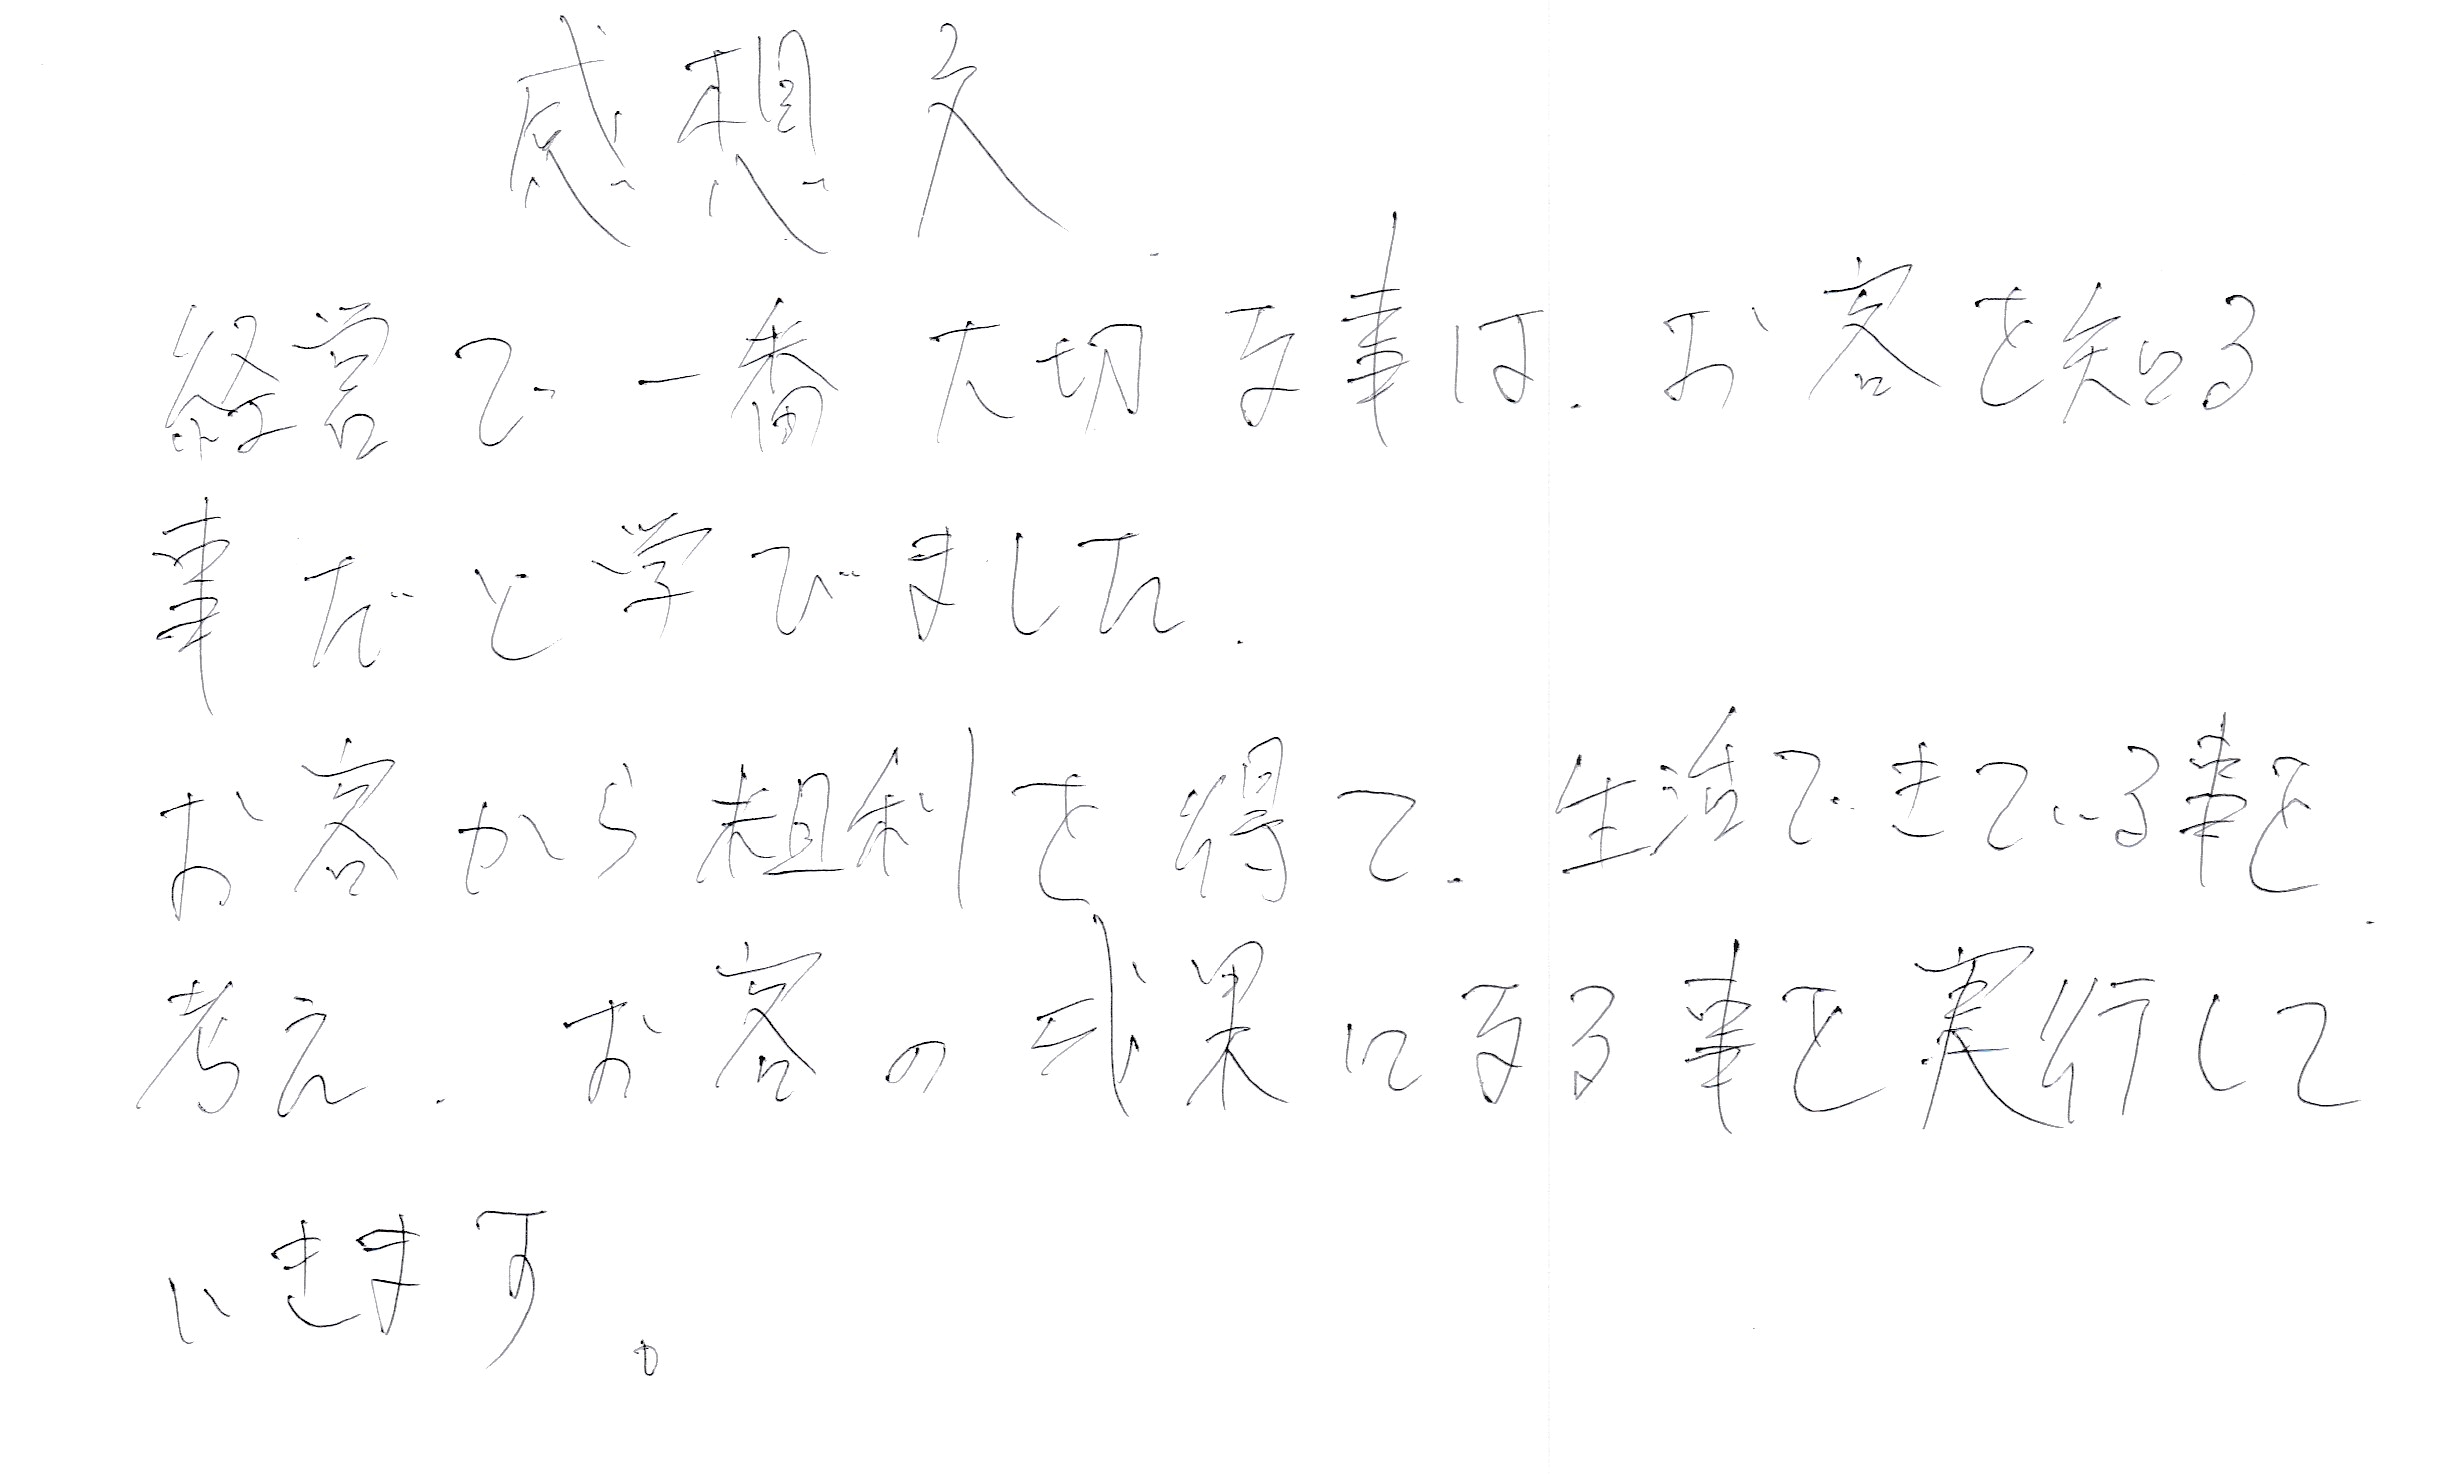 感想文
経営で一番大切な事は、お客を知る
事だと学びました。
お客から粗利を得て、生活できている事を
考え、お客の成果になる事を実行して
いきます。